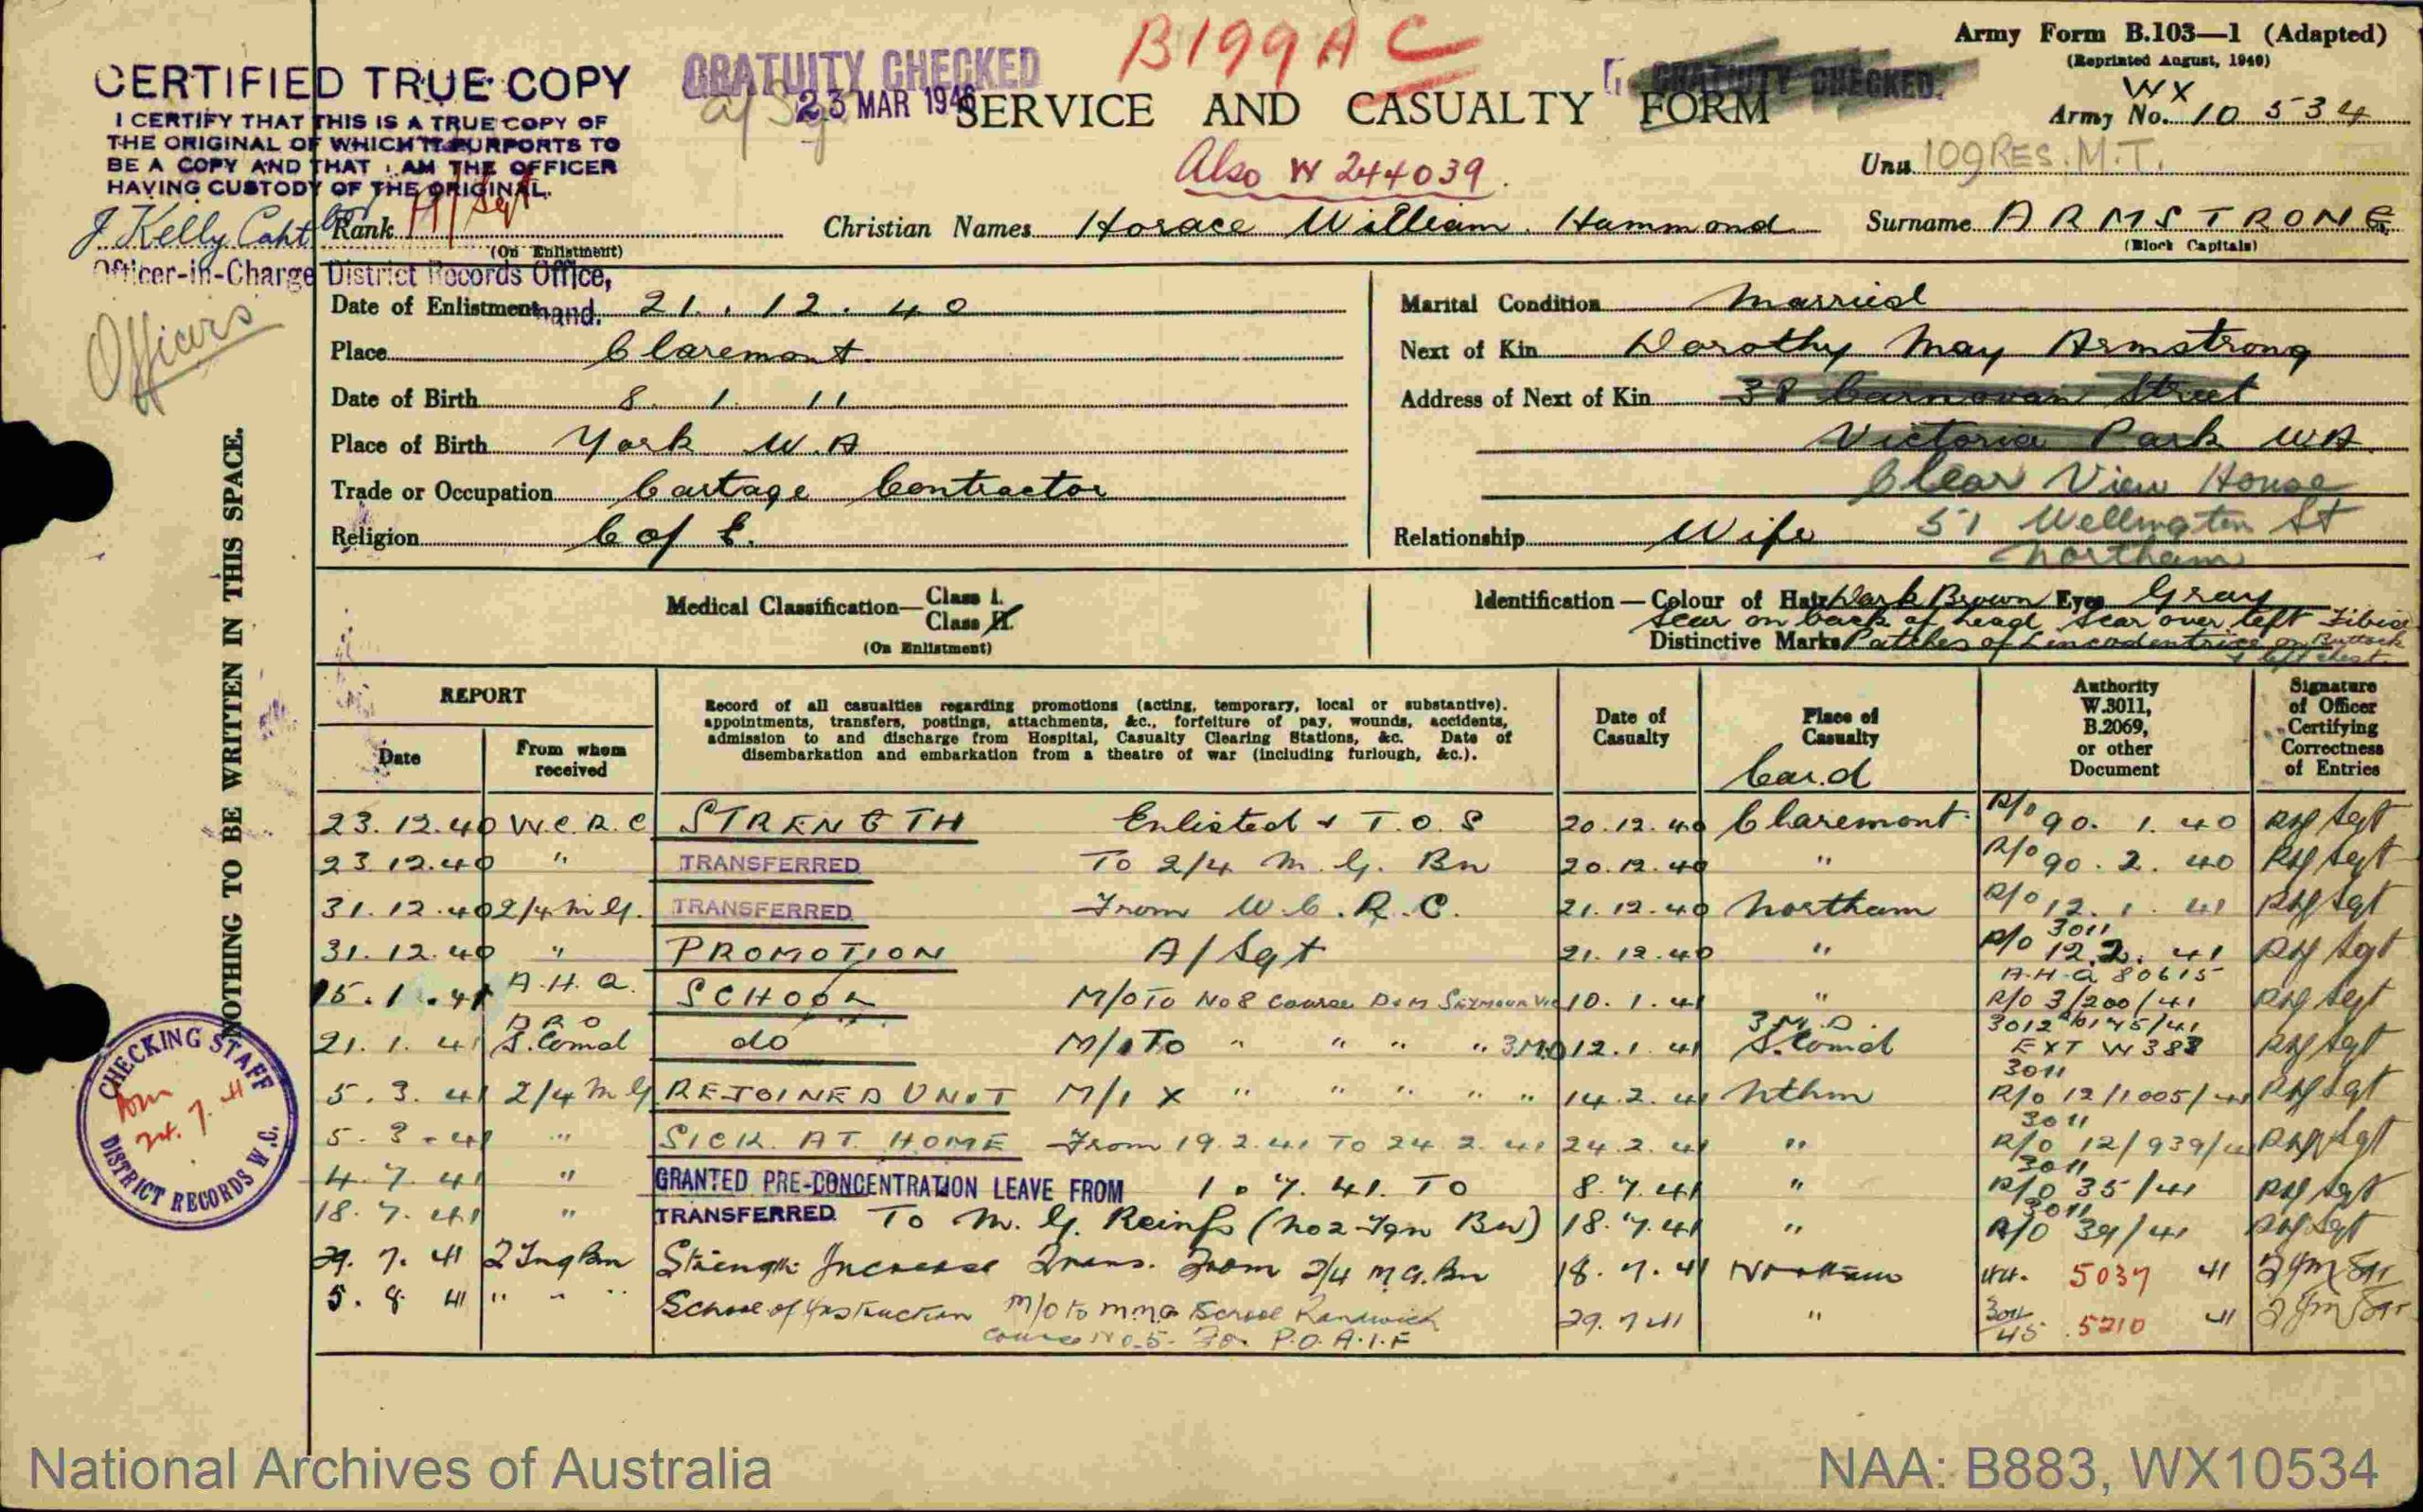 B199A C
Army Form B.103—1 (Adapted)
(Reprinted August, 1940)
CERTIFIED TRUE COPY
I CERTIFY THAT THIS IS A TRUE COPY OF
THE ORIGINAL OF WHICH IT PURPORTS TO
BE A COPY AND THAT I AM THE OFFICER
HAVING CUSTODY OF THE ORIGINAL.
J Kelly Capt
Officer-in-Charge District Records Office,
GRATUITY CHECKED
23 MAR 1946
GRATUITY CHECKED.
SERVICE AND CASUALTY FORM
WX
Army No. 10534
Also W 244039.
Unit 109 RES. M.T.
Rank A/Sgt
(On Enlistment)
Christian Names Horace William Hammond
Surname ARMSTRONG
(Block Capitals)
Officers
Date of Enlistment 21.12.40
Place Claremont
Date of Birth 8.1.11
Place of Birth York W.A
Trade or Occupation Cartage Contractor
Religion C of E.
Marital Condition Married
Next of Kin Dorothy May Armstrong
Address of Next of Kin 38 Street
Victoria Park WA
Clear View House
51 Wellington St
Northam
Relationship Wife
Medical Classification— Class I.
Class II.
(On Enlistment)
Identification — Colour of Hair Dark Brown Eyes Gray
Scar on back of head Scar over left Tibia
Distinctive Marks Patches of on Buttock
& left chest.
NOTHING TO BE WRITTEN IN THIS SPACE.
REPORT
Date
From whom received
Record of all casualties regarding promotions (acting, temporary, local or substantive).
appointments, transfers, postings, attachments, &c., forfeiture of pay, wounds, accidents,
admission to and discharge from Hospital, Casualty Clearing Stations, &c. Date of
disembarkation and embarkation from a theatre of war (including furlough, &c.).
Date of Casualty
Place of Casualty
Card
Authority W.3011, B.2069, or other Document
Signature of Officer Certifying Correctness of Entries
23.12.40 W.C.R.C STRENGTH Enlisted & T.O.S 20.12.40 Claremont R/o 90.1.40 Sgt
23.12.40 " TRANSFERRED To 2/4 M.G. Bn 20.12.40 " R/o 90.2.40 Sgt
31.12.40 2/4 M.G. TRANSFERRED From W.C.R.C. 21.12.40 Northam R/o 12.1.41 Sgt
3011
31.12.40 " PROMOTION A/Sgt 21.12.40 " R/o 12.2.41 Sgt
A.H.Q 80615
15.1.41 A.H.Q. SCHOOL M/O To No 8 Course Vic 10.1.41 " R/O 3/200/41 Sgt
DRO 3 M.D. 3012
21.1.41 S.Comd do M/O To " " " " 3MD 12.1.41 S.Comd EXT W383 Sgt
3011
5.3.41 2/4 M G REJOINED UNIT M/I X " " " " " 14.2.41 Nthm R/o 12/1005/41 Sgt
3011
5.3.41 " SICK AT HOME From 19.2.41 To 24.2.41 24.2.41 " R/o 12/939/41 Sgt
3011
4.7.41 " GRANTED PRE-CONCENTRATION LEAVE FROM 1.7.41. TO 8.7.41 " R/O 35/41 Sgt
3011
18.7.41 " TRANSFERRED To M.G. Reinfs (No 2 Tgn Bn) 18.7.41 " R/O 39/41 Sgt
29.7.41 2 Tng Bn Strength Increase Trans. From 2/4 M.G. Bn 18.7.41 Northam 44. 5037 41
5.8.41 " " " School of Instruction M/O to M.M.G School Randwick 29.7.41 " 3011 45. 5210 41
Course No. 5. For P.O. A.I.F
CHECKING STAFF
DISTRICT RECORDS W.C.
National Archives of Australia
NAA: B883, WX10534